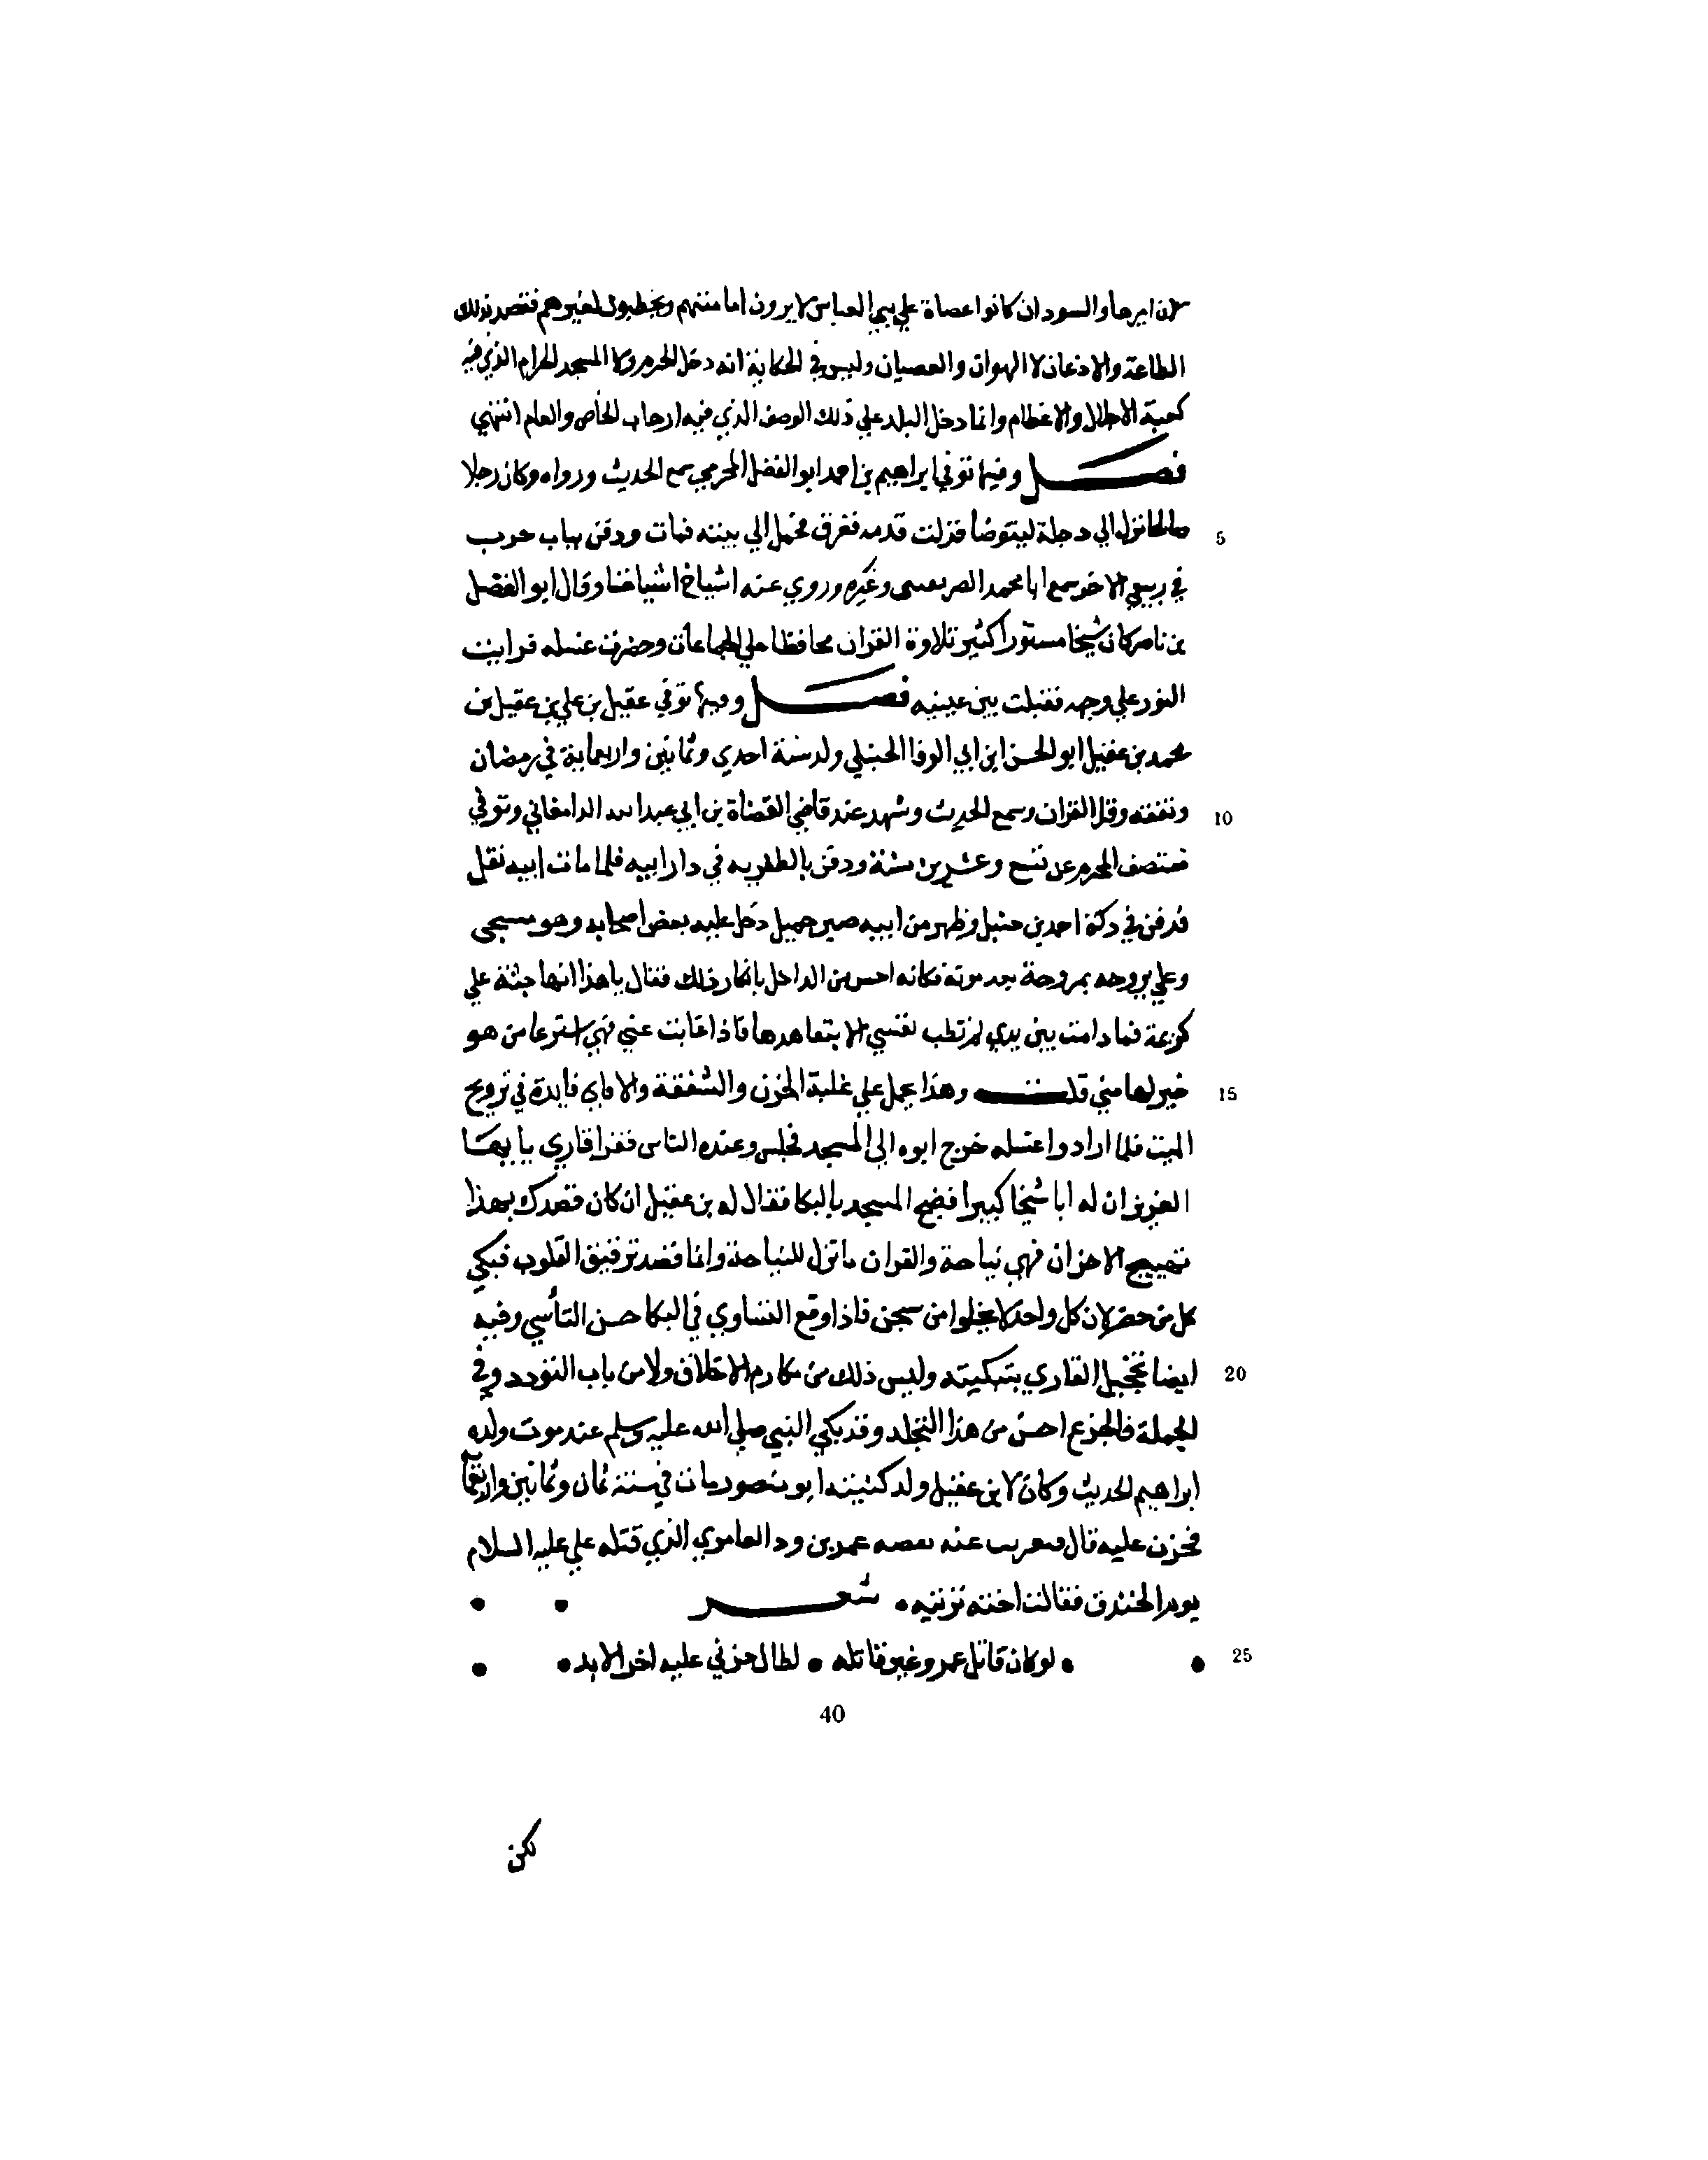 لان ابرها والسودان كانوا عصاة علي بني العباس لا يرون امامتهم ويخطبون لغيرهم فقصد بذلك
الطاعة والاذعان لا الهوان والعصيان وليس في الحكاية انه دخل الحرم ولا المسجد الحرام الذي فيه
كعبة الاجلال والاعظام وانما دخل البلد علي ذلك الوصف الذي فيه ارحاب الخاص والعام انتهي
فصل وفيها توفي ابراهيم بن احمد ابو الفضل المخرمي سمع الحديث ورواه وكان رجلا
5 صالحا نزل الي دجلة ليتوضأ فزلت قدمه فغرق فحمل الي بيته فمات ودفن بباب حرب
في ربيع الاخر سمع ابا محمد الصريفيني وغيره وروي عنه اشياخ اشياخنا وقال ابو الفضل
بن ناصر كان شيخا مستورا كثير تلاوة القران محافظا علي الجماعات وحضرت غسله فرايت
النور علي وجهه فقبلت بين عينيه فصل وفيها توفي عقيل بن علي بن عقيل بن
محمد بن عقيل ابو الحسن ابن ابي الوفا الحنبلي ولد سنة احدي وثمانين واربعماية في رمضان
10 وتفقه وقرا القران وسمع الحديث وشهد عند قاضي القضاة بن ابي عبد الله الدامغاني وتوفي
منتصف المحرم عن تسع وعشرين سنة ودفن بالظفريه في دار ابيه فلما مات ابيه نقل
فدفن في دكة احمد بن حنبل وظهر من ابيه صبر جميل دخل عليه بعض اصحابه وهو مسجى
وعلي يروحه بمروحة بعد موته فكانه احس من الداخل بانكار ذلك فقال يا هذا انها جثة علي
كريمة فما دامت بين يدي لم تطب نفسي الا بتعاهدها فاذا غابت عني فهي استرعا من هو
15 خير لها مني قلت وهذا يحمل علي غلبة الحزن والشفقة والا فاي فايدة في ترويح
الميت فلما ارادوا غسله خرج ابوه الي المسجد فجلس وعنده الناس فقرا قاري يا ايها
العزيز ان له ابا شيخا كبيرا فضج المسجد بالبكا فقال له بن عقيل ان كان قصدك بهذا
تهييج الاحزان فهي نياحة والقران ما نزل للنياحة وانما قصد ترقيق القلوب فبكي
كل من حضر لان كل واحد لا يخلوا من سجن فاذا وقع التساوي في البكا حسن التأسي وفيه
20 ايضا تخجيل القاري بتبكيته وليس ذلك من مكارم الاخلاق ولا من باب التودد وفي
الجملة فالجزع احسن من هذا التجلد وقد بكي النبي صلي الله عليه وسلم عند موت ولده
ابراهيم الحديث وكان لابن عقيل ولد كنيته ابو منصور مات في سنة ثمان وثمانين واربعما
فحزن عليه قال فتعزيت عنه بقصه عمرو بن ود العامري الذي قتله علي عليه السلام
يوم الخندق فقالت اخته ترثيه • شعر • •
25 • • لو كان قاتل عمرو غير قاتله • لطال حزني عليه اخر الابد • •
40
لكن